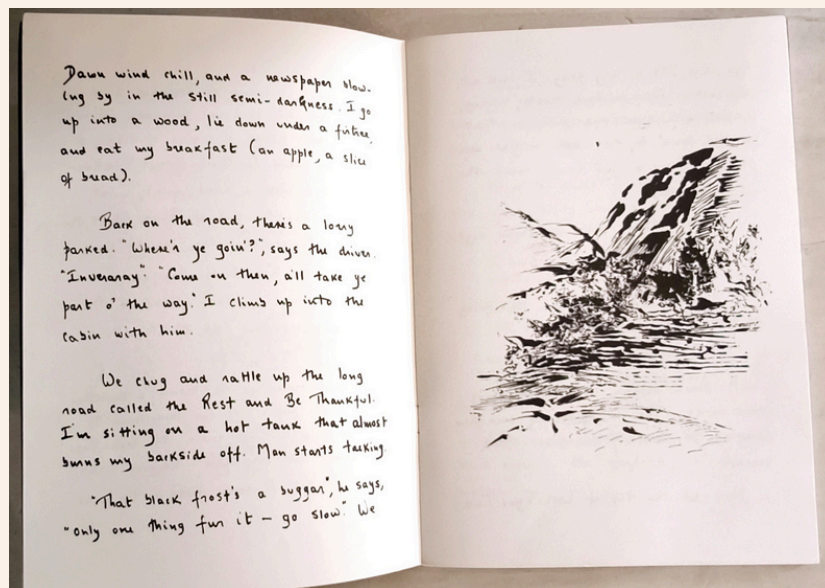 Dawn wind chill, and a newspaper blow-
ing by in the still semi-darkness. I go
up into a wood, lie down under a firtree,
and eat my breakfast (an apple, a slice
of bread).
Back on the road, there's a lorry
parked. "Where'r ye goin'?", says the driver.
"Inveraray". "Come on then, a'll take ye
part o' the way." I climb up into the
cabin with him.
We chug and rattle up the long
road called the Rest and Be Thankful.
I'm sitting on a hot tank that almost
burns my backside off. Man starts talking.
"That black frost's a buggar", he says,
"only one thing fur it – go slow." We